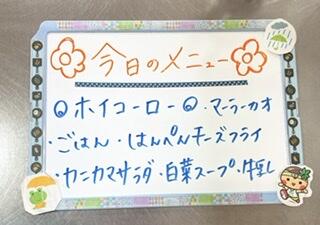 今日のメニュー
◎ホイコーロー◎・マーラーカオ
・ごはん・はんぺんチーズフライ
・カニカマサラダ・白菜スープ・牛乳